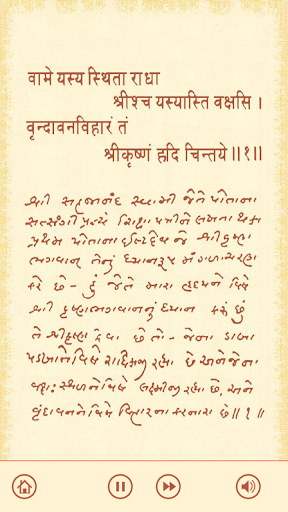 वामे यस्य स्थिता राधा
श्रीश्च यस्यास्ति वक्षसि ।
वृन्दावनविहारं तं
श्रीकृष्णं हृदि चिन्तये ॥१॥
શ્રી સહજાનંદ સ્વામી જેતે પોતાના
સત્સંગી પ્રત્યે શિક્ષાપત્રીને લખતા થકા
પ્રથમ પોતાના ઈષ્ટદેવ જે શ્રી કૃષ્ણ
ભગવાન તેનું ધ્યાનરૂપ મંગળાચરણ
કરે છે – હું જેતે મારા હૃદયને વિષે
શ્રી કૃષ્ણભગવાનનું ધ્યાન કરું છું
તે શ્રીકૃષ્ણ કેવા છે તો – જેના ડાબા
પડખાને વિષે રાધિકાજી રહ્યાં છે અને જેના
વક્ષઃસ્થળને વિષે લક્ષ્મીજી રહ્યાં છે, અને
વૃંદાવનને વિષે વિહારના કરનારા છે ॥ ૧ ॥